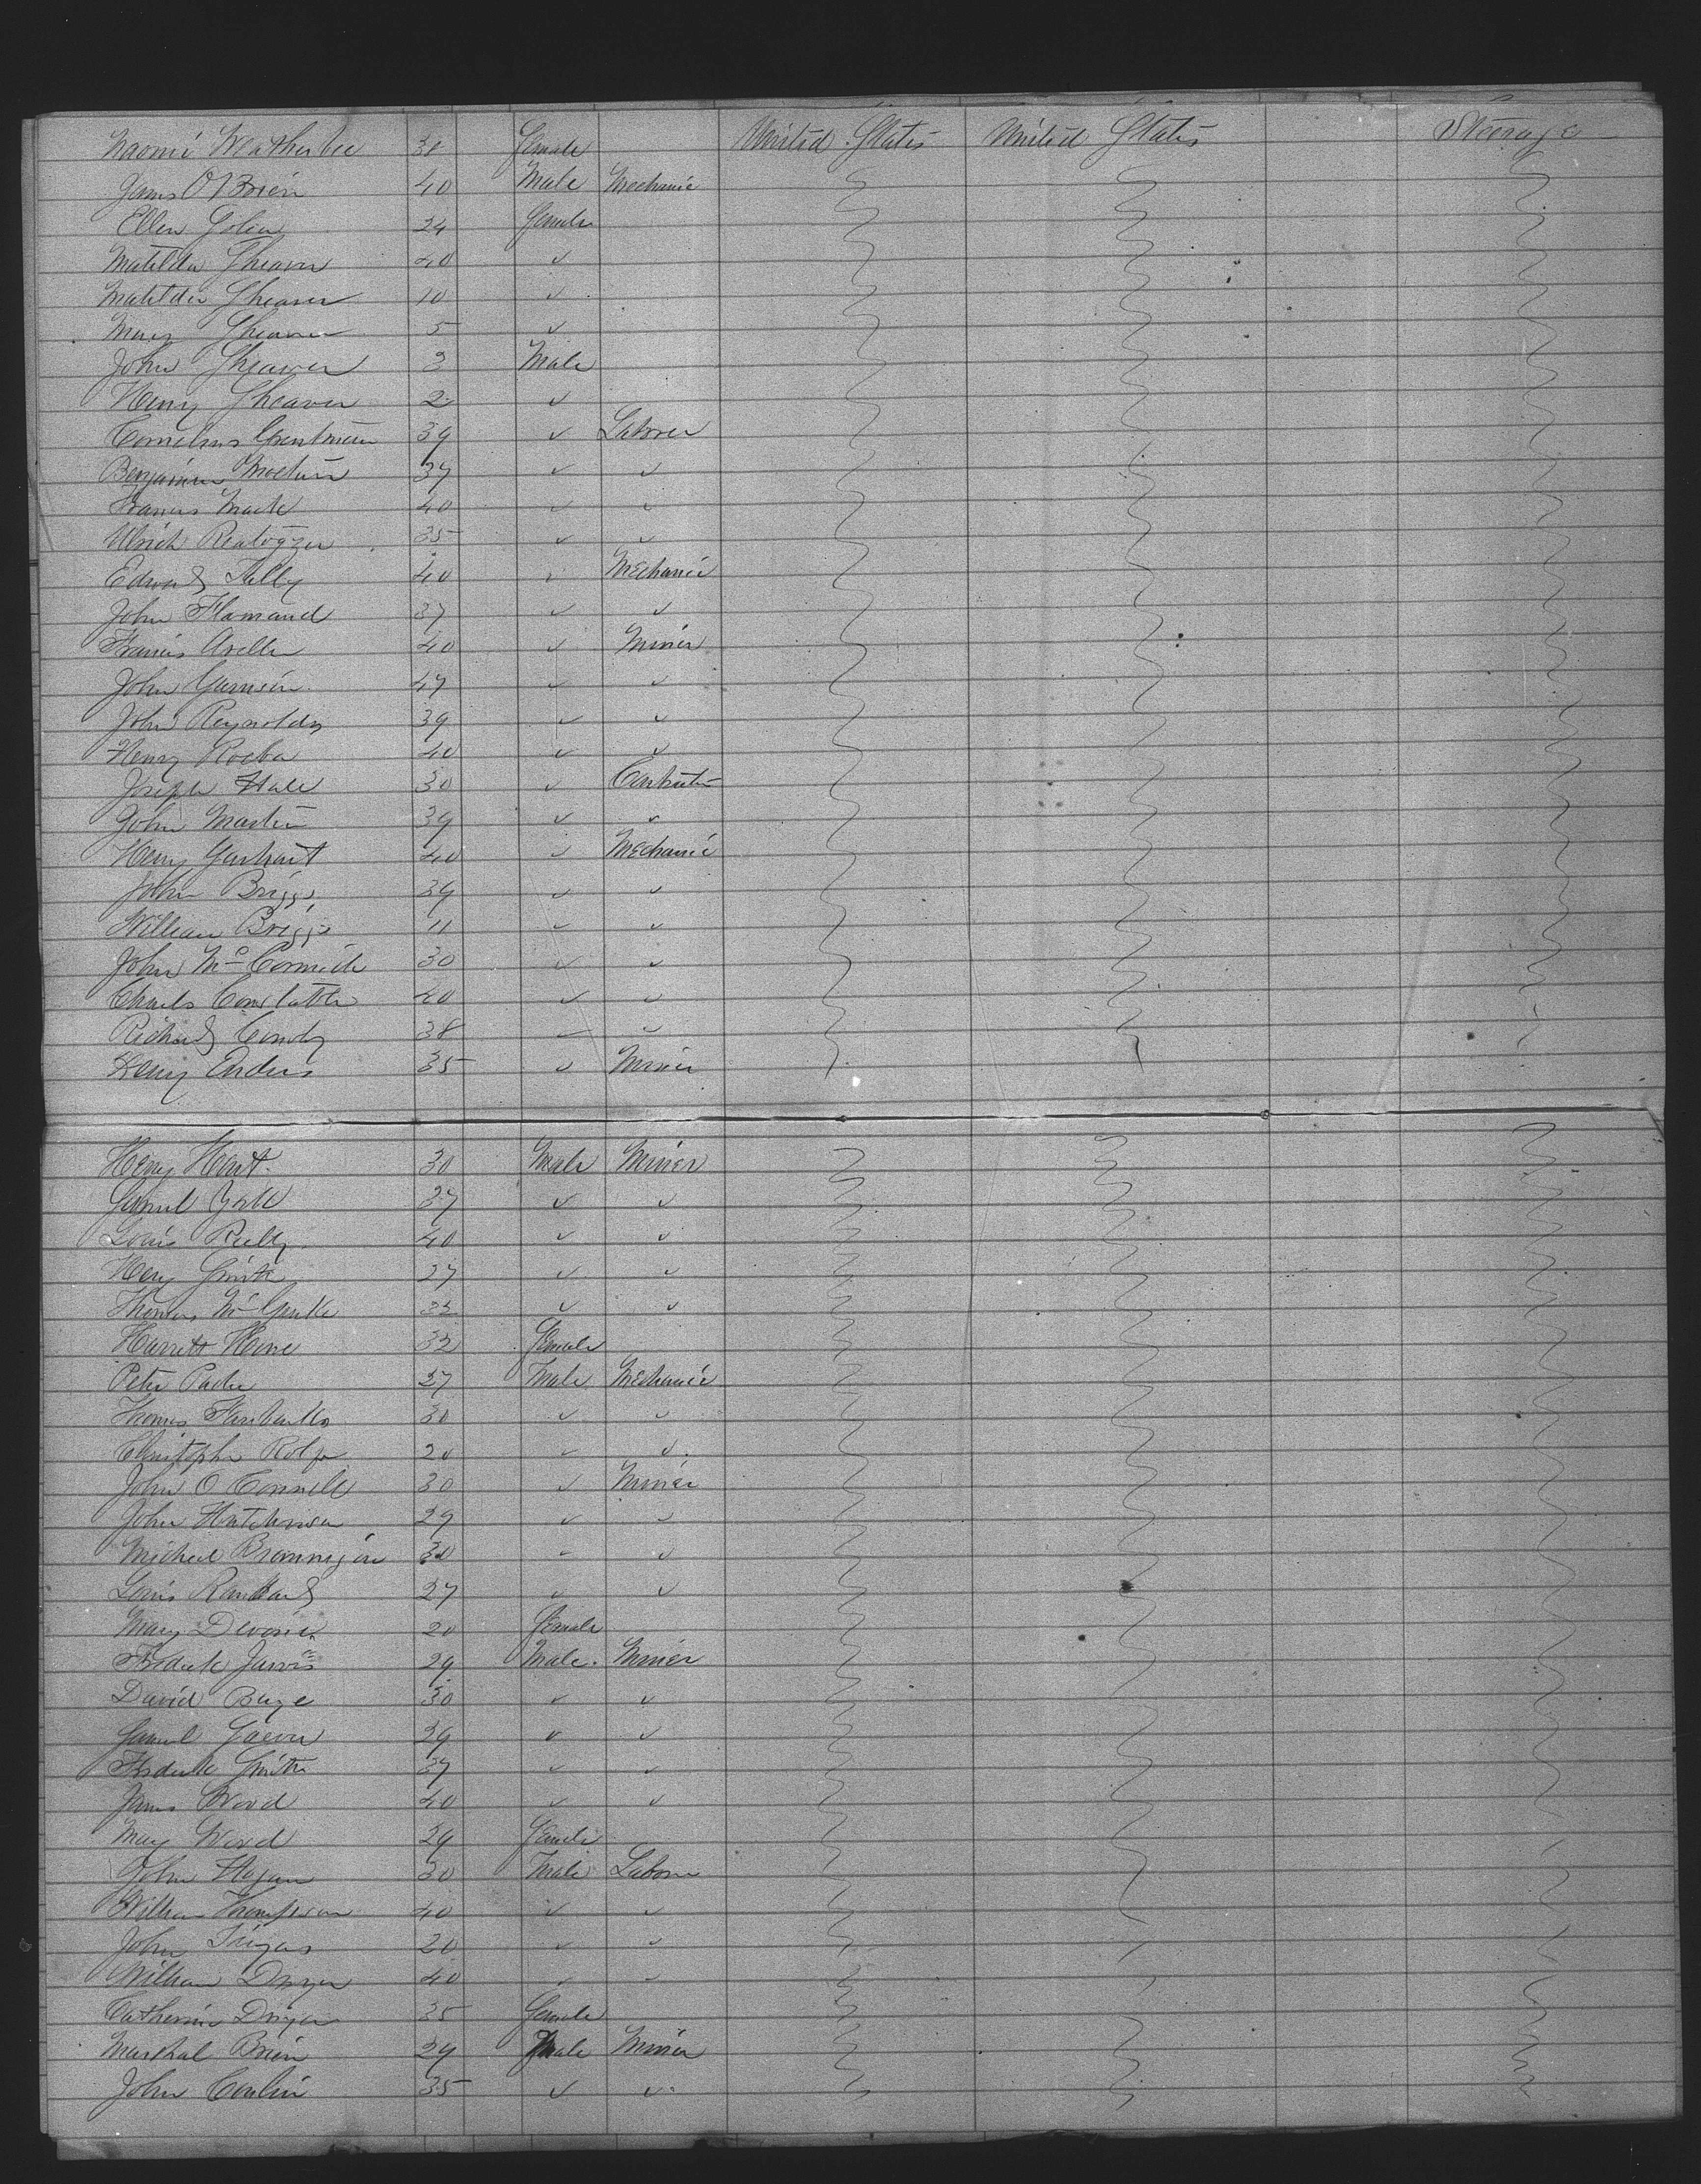 Naomi Weatherbee 38 Female United States United States Steerage
James O'Brien 40 Male Mechanic
Ellen 24 Female
Matilda Sheaver 40 ✓
Matilda Sheaver 10 ✓
Mary Sheaver 5 ✓
John Sheaver 3 Male
Henry Sheaver 2 ✓
Cornelius 39 ✓ Laborer
Benjamin 37 ✓ ✓
Francis Mack 40 ✓ ✓
Ulrich 35 ✓ ✓
Edward Kelly 40 ✓ Mechanic
John Flamand 37 ✓ ✓
Francis Arelle 40 ✓ Miner
John 47 ✓ ✓
John Reynolds 39 ✓ ✓
Henry Roeba 40 ✓ ✓
Joseph Hale 30 ✓
John Martin 39 ✓ ✓
Henry Garhart 40 ✓ Mechanic
John Briggs 39 ✓ ✓
William Briggs 11 ✓ ✓
John McCormick 30 ✓ ✓
Charles 40 ✓ ✓
Richard Condy 38 ✓ ✓
Henry Enders 35 ✓ Miner
Henry Hart 30 Male Miner
Samuel York 37 ✓ ✓
Louis Reilly 40 ✓ ✓
Henry Smith 27 ✓ ✓
Thomas 22 ✓ ✓
Harriett Horne 32 Female
Peter 27 Male Mechanic
Thomas Fairbanks 30 ✓ ✓
Christopher Rolfe 20 ✓ ✓
John O Connell 30 ✓ Miner
John Hutchinson 29 ✓ ✓
Michael Brannigan 30 ✓ ✓
Louis 27 ✓ ✓
Mary 20 Female
Frederick Jarvis 29 Male Miner
David Baze 30 ✓ ✓
Samuel 29 ✓ ✓
Frederick Smith 37 ✓ ✓
James Wood 40 ✓ ✓
Mary Wood 29 Female
John Hogan 30 Male Labore
William Thompson 40 ✓ ✓
John 20 ✓ ✓
William Dwyer 40 ✓ ✓
Catherine Dwyer 35 Female
Marshal Brien 29 Male Miner
John Conlin 35 ✓ ✓